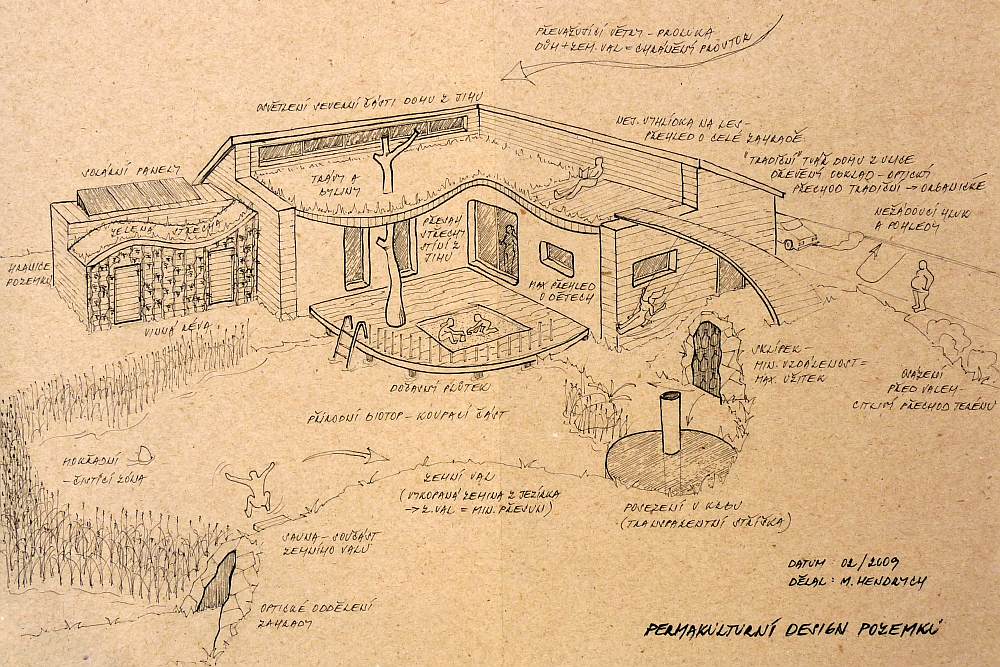 PŘEVAŽUJÍCÍ VĚTRY - PROLUKA
DŮM + ZEM. VAL = CHRÁNĚNÝ PROSTOR
OSVĚTLENÍ SEVERNÍ ČÁSTI DOMU Z JIHU
NEJ. VYHLÍDKA NA LES -
PŘEHLED O CELÉ ZAHRADĚ
"TRADIČNÍ" TVÁŘ DOMU Z ULICE
DŘEVĚNÝ OBKLAD - OPTICKÝ
PŘECHOD TRADIČNÍ → ORGANICKÉ
SOLÁRNÍ PANELY
TRÁVY A
BYLINY
NEŽÁDOUCÍ HLUK
A POHLEDY
ZELENÁ STŘECHA
PŘESAH
STŘECHY
STÍNÍ Z
JIHU
HRANICE
POZEMKU
MAX PŘEHLED
O DĚTECH
VINNÁ RÉVA
SKLÍPEK -
MIN. VZDÁLENOST =
MAX. UŽITEK
OSAZENÍ
PŘED VALEM -
CITLIVÝ PŘECHOD TERÉNU
DOČASNÝ PLŮTEK
PŘÍRODNÍ BIOTOP - KOUPACÍ ČÁST
MOKŘADNÍ
- ČISTÍCÍ ZÓNA
ZEMNÍ VAL
(VYKOPANÁ ZEMINA Z JEZÍRKA
→ Z.VAL = MIN. PŘESUN)
POSEZENÍ U KRBU
(TRANSPARENTNÍ STŘÍŠKA)
SAUNA - SOUČÁST
ZEMNÍHO VALU
OPTICKÉ ODDĚLENÍ
ZAHRADY
DATUM : 02/2009
DĚLAL : M. HENDRYCH
PERMAKULTURNÍ DESIGN POZEMKU